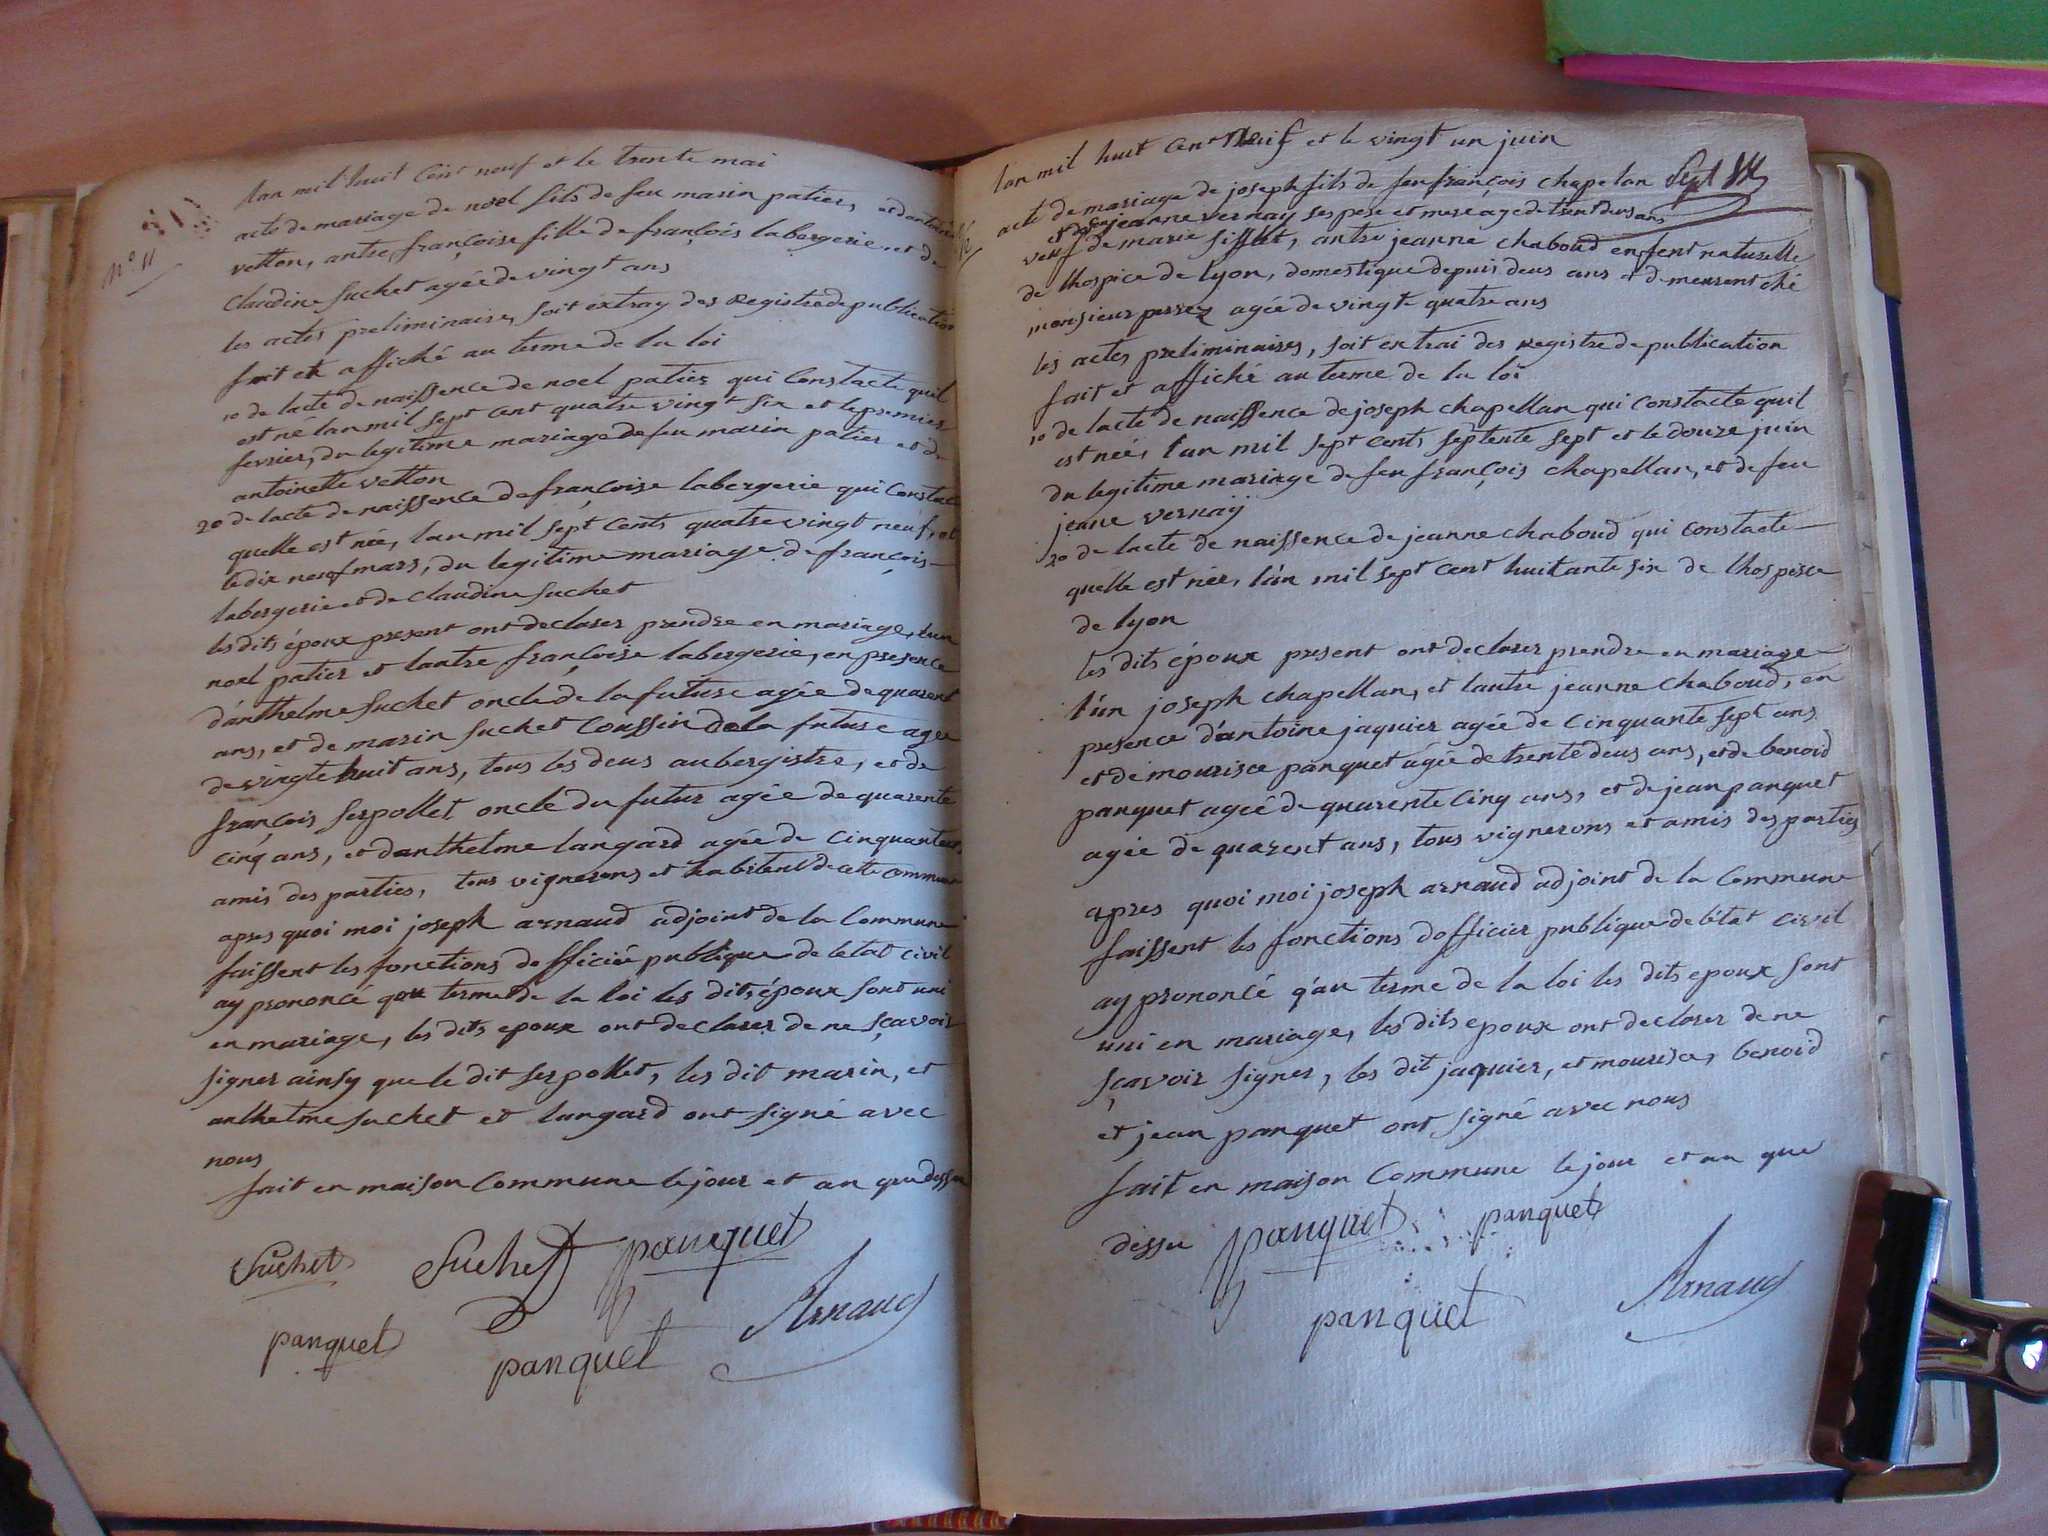 N° 11
lan mil huit Cent neuf et le trente mai
acte de mariage de noel fils de feu marin patier, et dantoinette
vetton, autre, françoise fille de françois labergerie, et de
Claudine Suchet agée de vingt ans
les actes preliminaires, soit extray des Registre de publication
fait et affiché au terme de la loi
1o de lacte de naissence de noel patier qui Constacte quil
est né lan mil sept cent quatre vingt six et le premier
fevrier, du legitime mariage de feu marin patier et de
antoinette vetton
2o de lacte de naissence de françoise labergerie qui Constacte
quelle est née, lan mil sept Cents quatre vingt neuf, et
le dix neuf mars, du legitime mariage de françois
labergerie et de Claudine Suchet
les dits époux present ont declarer prendre en mariage, lun
noel patier et lautre françoise labergerie, en presence
d'anthelme Suchet oncle de la future agée de quarent
ans, et de marin Suchet Coussin de la future agée
de vingte huit ans, tous les deus aubergistre, et de
françois Serpollet oncle du futur agée de quarente
cinq ans, et danthelme langard agée de Cinquante
amis des parties, tous vignerons et habitent de cette Commune
apres quoi moi joseph arnaud adjoint de la Commune
faissent les fonctions dofficiée publique de letat Civil
ay prononcé qau terme de la loi les dits époux sont uni
en mariage, les dits epoux ont declarer de ne sçavoir
signer ainsy que le dit Serpollet, les dit marin, et
anthelme Suchet et langard ont signé avec
nous
fait en maison Commune le jour et an que dessu
Suchet Suchet panquet
panquet panquet Arnaud
lan mil huit Cent Neuf et le vingt un juin
acte de mariage de joseph fils de feu françois chapelan
et de jeanne vernay ses pere et mere agé de trent deus ans
veuf de marie sifflet, autre jeanne chaboud enfent naturelle
de lhospice de lyon, domestique depuis deus ans et demeurent ché
monsieur perrez agée de vingt quatre ans
les actes preliminaires, soit extrai des Registre de publication
fait et affiché au terme de la loi
1o de lacte de naissence de joseph chapellan qui Constacte quil
est née, l'an mil sept Cents septente sept et le douze juin
du legitime mariage de feu françois chapellan, et de feu
jeane vernay
2o de lacte de naissence de jeanne chaboud qui Constacte
quelle est née, l'an mil sept Cent huitante six de lhospisce
de lyon
les dits époux present ont declarer prendre en mariage
l'un joseph chapellan, et lautre jeanne chaboud, en
presence d'antoine jaquier agée de Cinquante sept ans
et de mourisce panquet agée de trente deus ans, et de benoid
panquet agée de quarente Cinq ans, et de jean panquet
agée de quarent ans, tous vignerons et amis des parties
apres quoi moi joseph arnaud adjoint de la Commune
faissent les fonctions dofficier publique de l'état Civil
ay prononcé q'au terme de la loi les dits epoux sont
uni en mariage, les dits epoux ont declarer de ne
sçavoir signer, les dit jaquier, et mourisce, benoid
et jean panquet ont signé avec nous
fait en maison Commune le jour et an que
dessu panquet panquet
panquet Arnaud